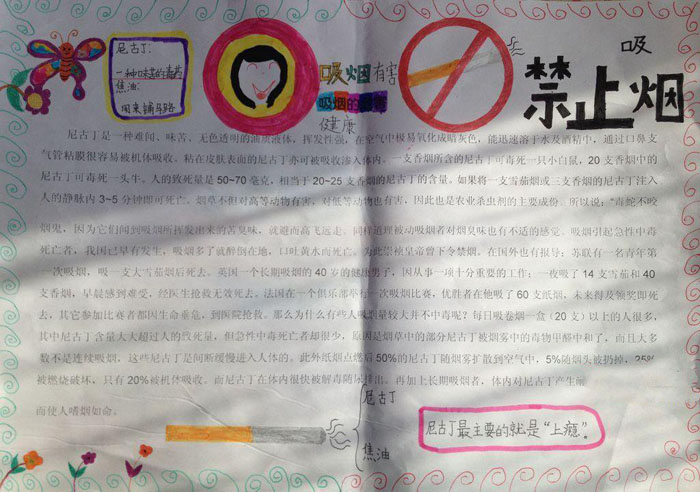 尼古丁：
一种味苦的毒药
焦油：
用来铺马路
吸烟有害
吸烟的危害
健康
吸
禁止烟
尼古丁是一种难闻、味苦、无色透明的油质液体，挥发性强，在空气中极易氧化成暗灰色，能迅速溶于水及酒精中，通过口鼻支
气管粘膜很容易被机体吸收。粘在皮肤表面的尼古丁亦可被吸收渗入体内。一支香烟所含的尼古丁可毒死一只小白鼠，20 支香烟中的
尼古丁可毒死一头牛。人的致死量是 50~70 毫克，相当于 20~25 支香烟的尼古丁的含量。如果将一支雪茄烟或三支香烟的尼古丁注入
人的静脉内 3~5 分钟即可死亡。烟草不但对高等动物有害，对低等动物也有害，因此也是农业杀虫剂的主要成份。所以说：“毒蛇不咬
烟鬼，因为它们闻到吸烟所挥发出来的苦臭味，就避而高飞远走。同样道理被动吸烟者对烟臭味也有不适的感觉。吸烟引起急性中毒
死亡者，我国已早有发生，吸烟多了就醉倒在地，口吐黄水而死亡。为此崇祯皇帝曾下令禁烟。在国外也有报导：苏联有一名青年第
一次吸烟，吸一支大雪茄烟后死去。英国一个长期吸烟的 40 岁的健康男子，因从事一项十分重要的工作，一夜吸了 14 支雪茄和 40
支香烟，早晨感到难受，经医生抢救无效死去。法国在一个俱乐部举行一次吸烟比赛，优胜者在他吸了 60 支纸烟，未来得及领奖即死
去，其它参加比赛者都因生命垂危，到医院抢救。那么为什么有些人吸烟量较大并不中毒呢？每日吸卷烟一盒（20 支）以上的人很多，
其中尼古丁含量大大超过人的致死量，但急性中毒死亡者却很少，原因是烟草中的部分尼古丁被烟雾中的毒物甲醛中和了，而且大多
数不是连续吸烟，这些尼古丁是间断缓慢进入人体的。此外纸烟点燃后 50%的尼古丁随烟雾扩散到空气中，5%随烟头被扔掉，25%
被燃烧破坏，只有 20%被机体吸收。而尼古丁在体内很快被解毒随尿排出。再加上长期吸烟者，体内对尼古丁产生耐
而使人嗜烟如命。
尼古丁
焦油
尼古丁最主要的就是“上瘾”。